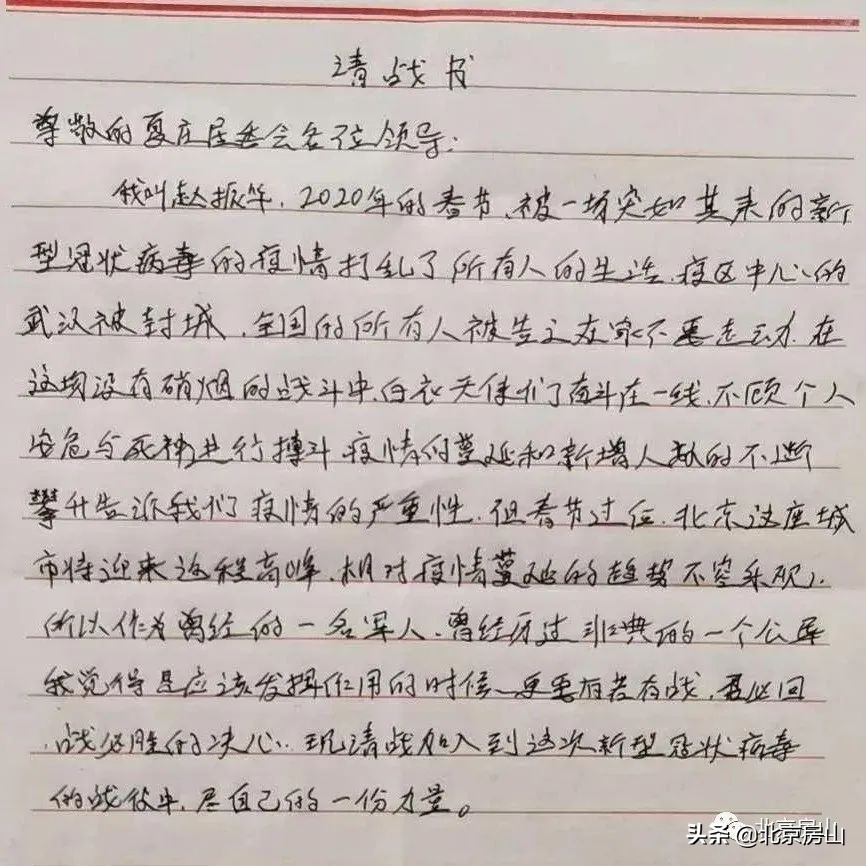 请战书
尊敬的夏庄居委会各位领导:
我叫赵振华,2020年的春节,被一场突如其来的新
型冠状病毒的疫情打乱了所有人的生活,疫区中心的
武汉被封城,全国的所有人被告之在家不要走动.在
这场没有硝烟的战斗中,白衣天使们奋斗在一线,不顾个人
安危与死神进行搏斗 疫情的蔓延和新增人数的不断
攀升告诉我们疫情的严重性.但春节过后,北京这座城
市将迎来返程高峰,相对疫情蔓延的趋势不容乐观.
所以作为曾经的一名军人,曾经历过非典的一个公民
我觉得是应该发挥作用的时候,更要有若有战,召必回
,战必胜的决心.现请战加入到这次新型冠状病毒
的战役中,尽自己的一份力量。
北京房山
头条@北京房山